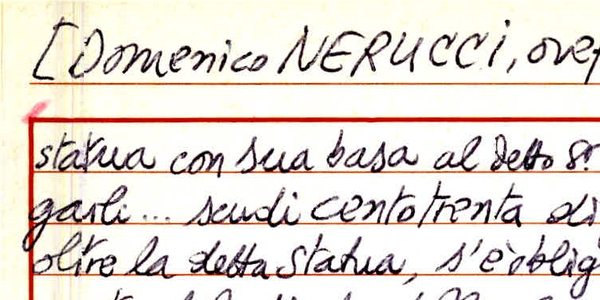 [Domenico NERUCCI, ove
statua con sua basa al detto Sr.
garli... scudi centotrenta di
oltre la detta statua, s'è oblig